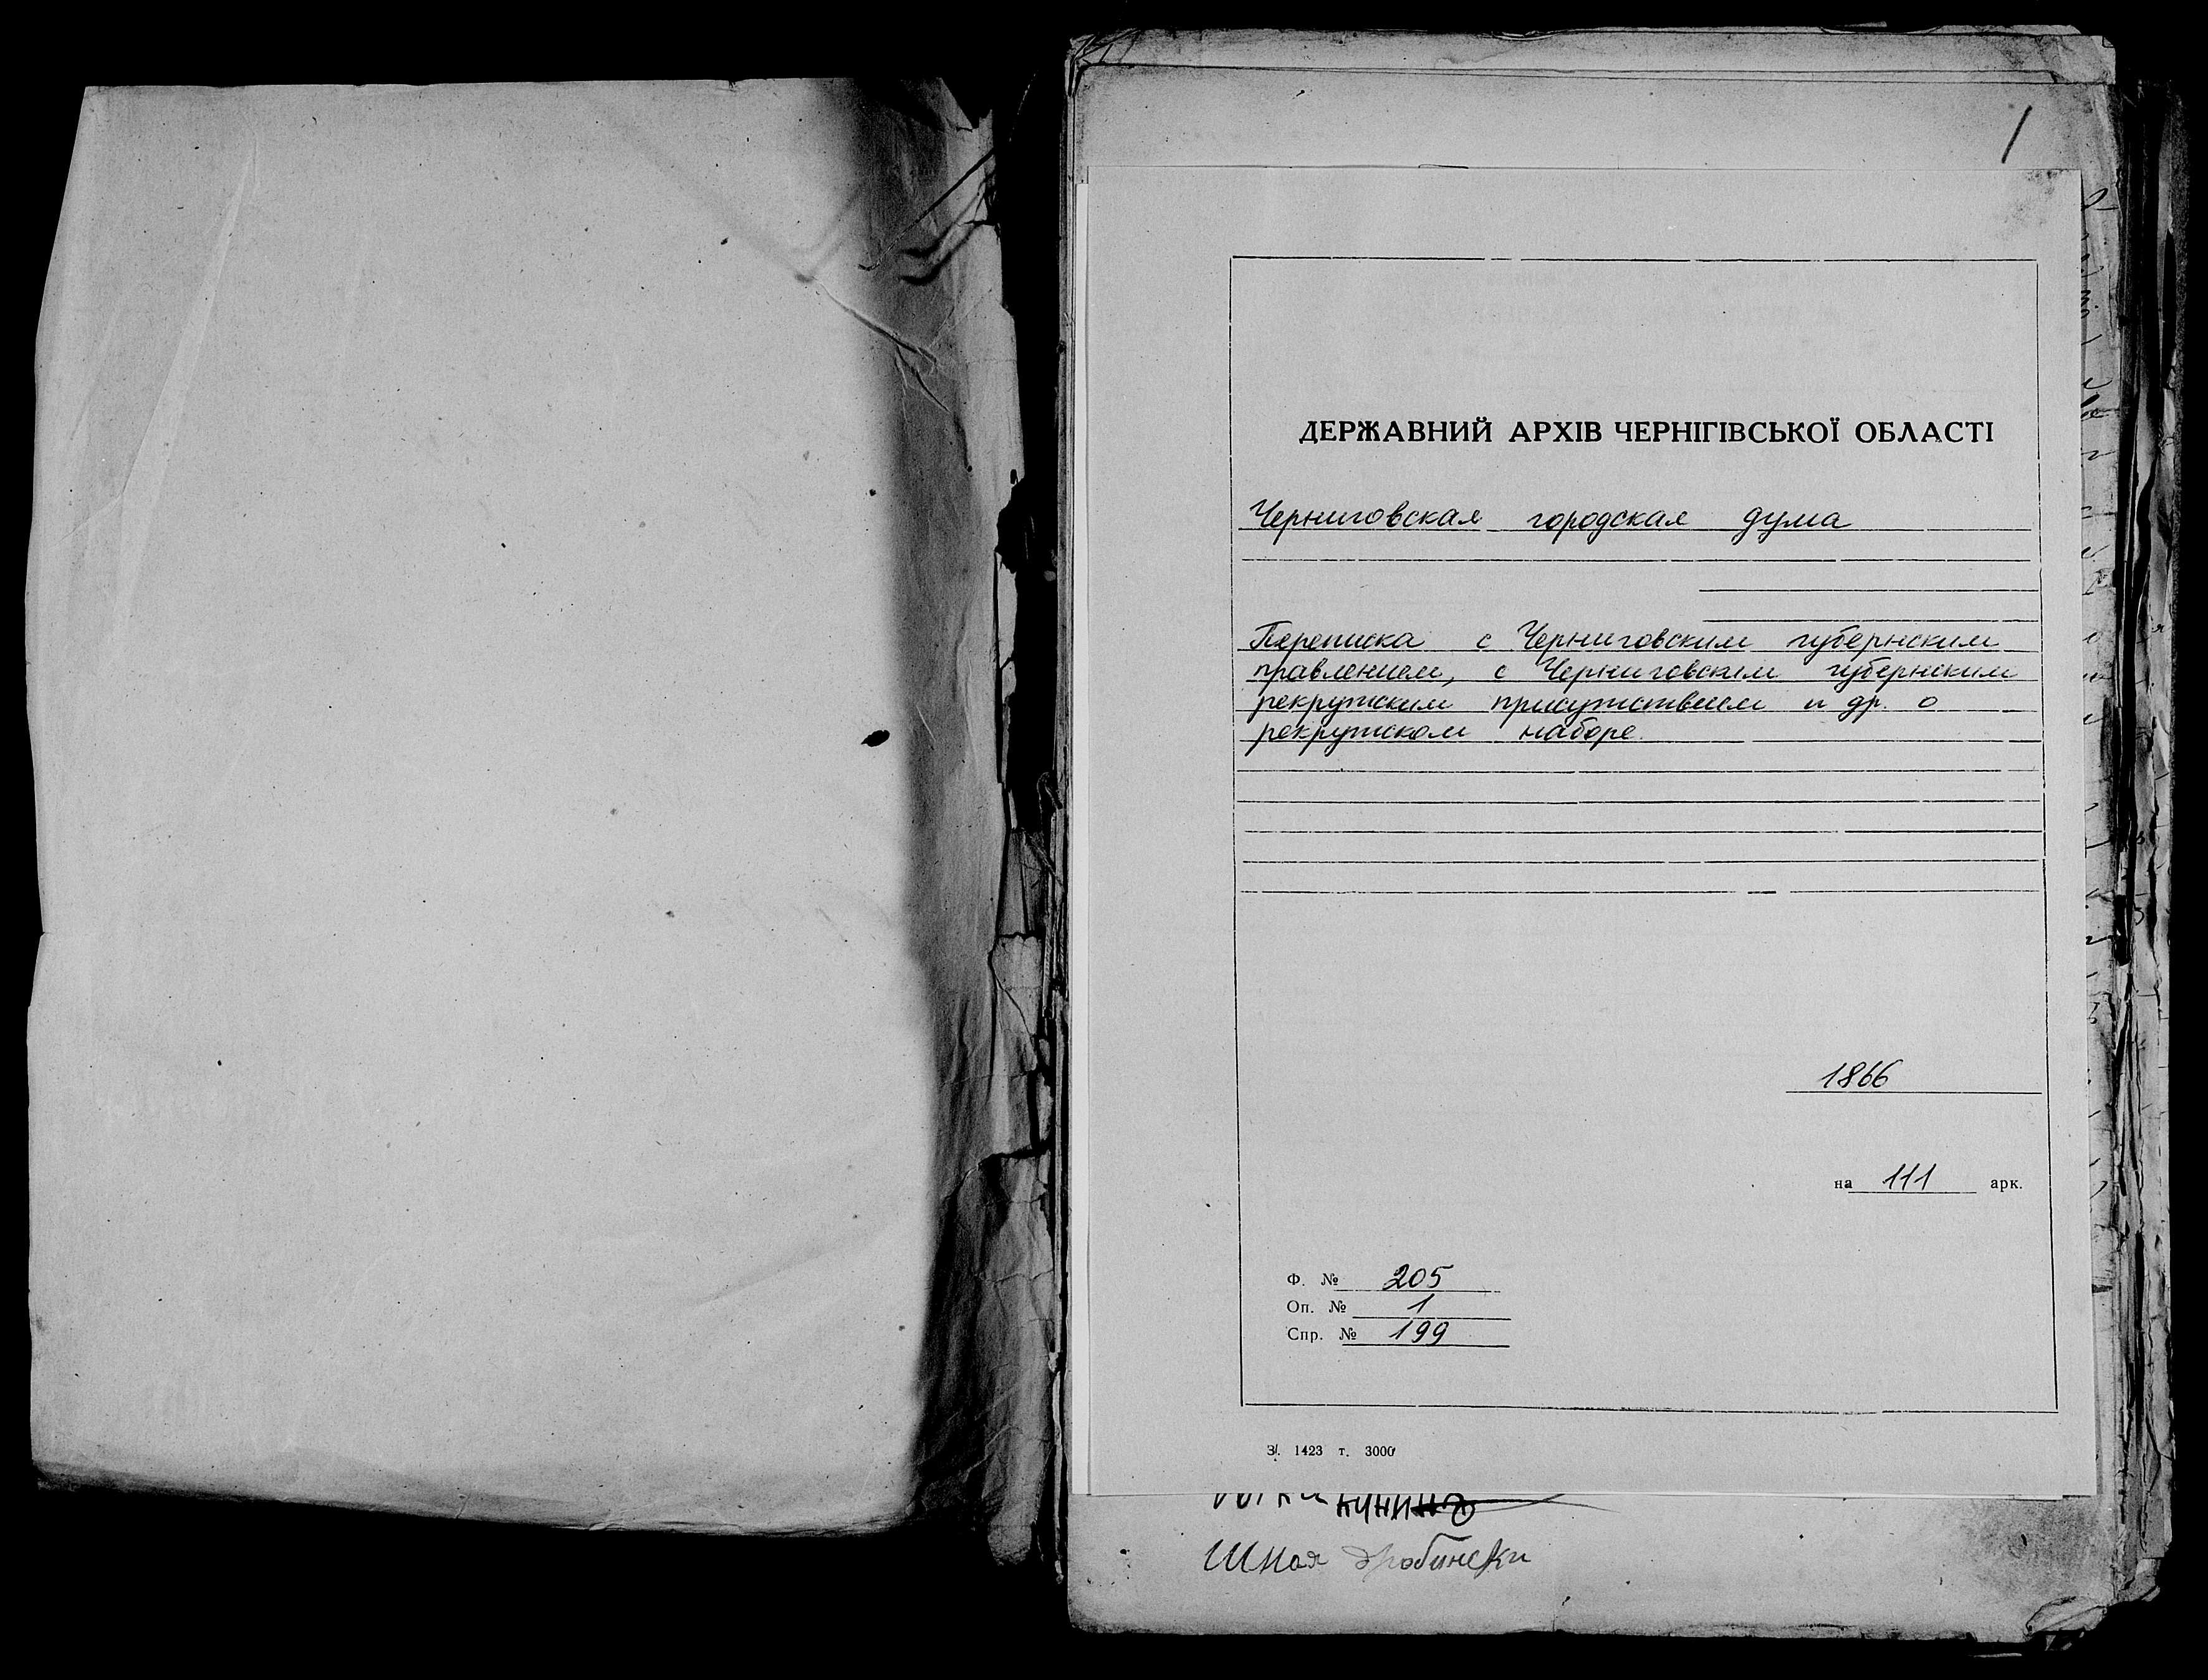 1
ДЕРЖАВНИЙ АРХІВ ЧЕРНІГІВСЬКОЇ ОБЛАСТІ
Черниговская городская дума
Переписка с Черниговским губернским
правлением, с Черниговским губернским
рекрутским присутствием и др. о
рекрутском наборе.
1866
на 111 арк.
Ф. № 205
Оп. № 1
Спр. № 199
З. 1423 т. 3000